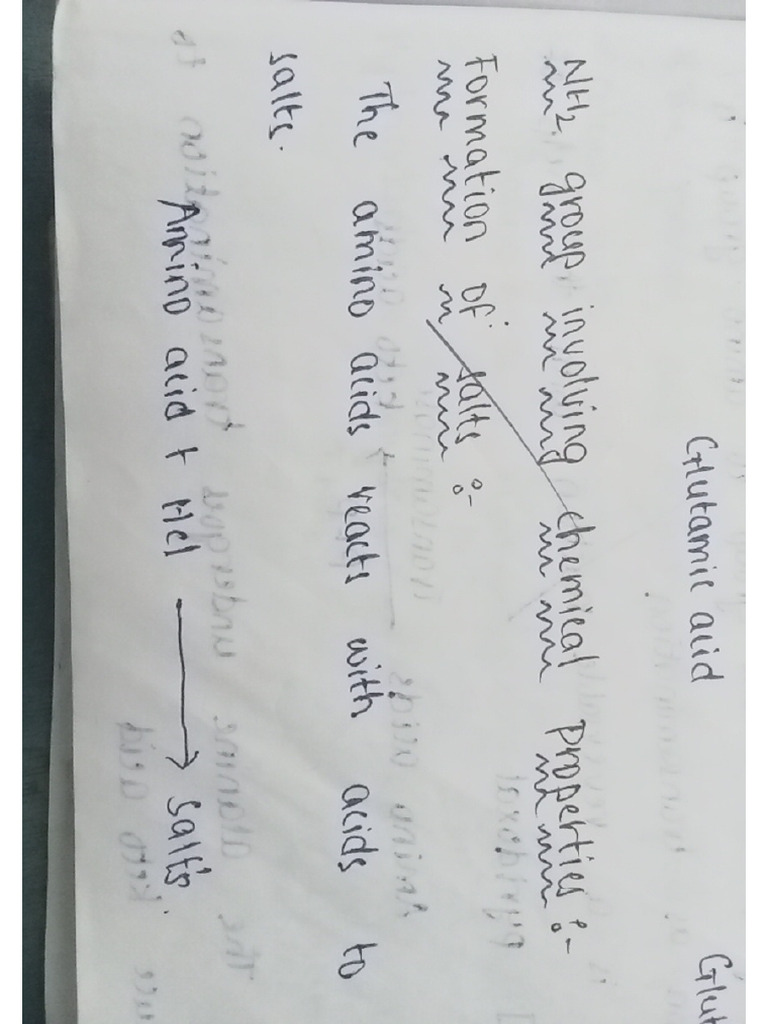 Glutamic acid Glut
NH2 group involving chemical properties :-
Formation of salts :-
The amino acids reacts with acids to
salts.
Amino acid + Hcl → salts.